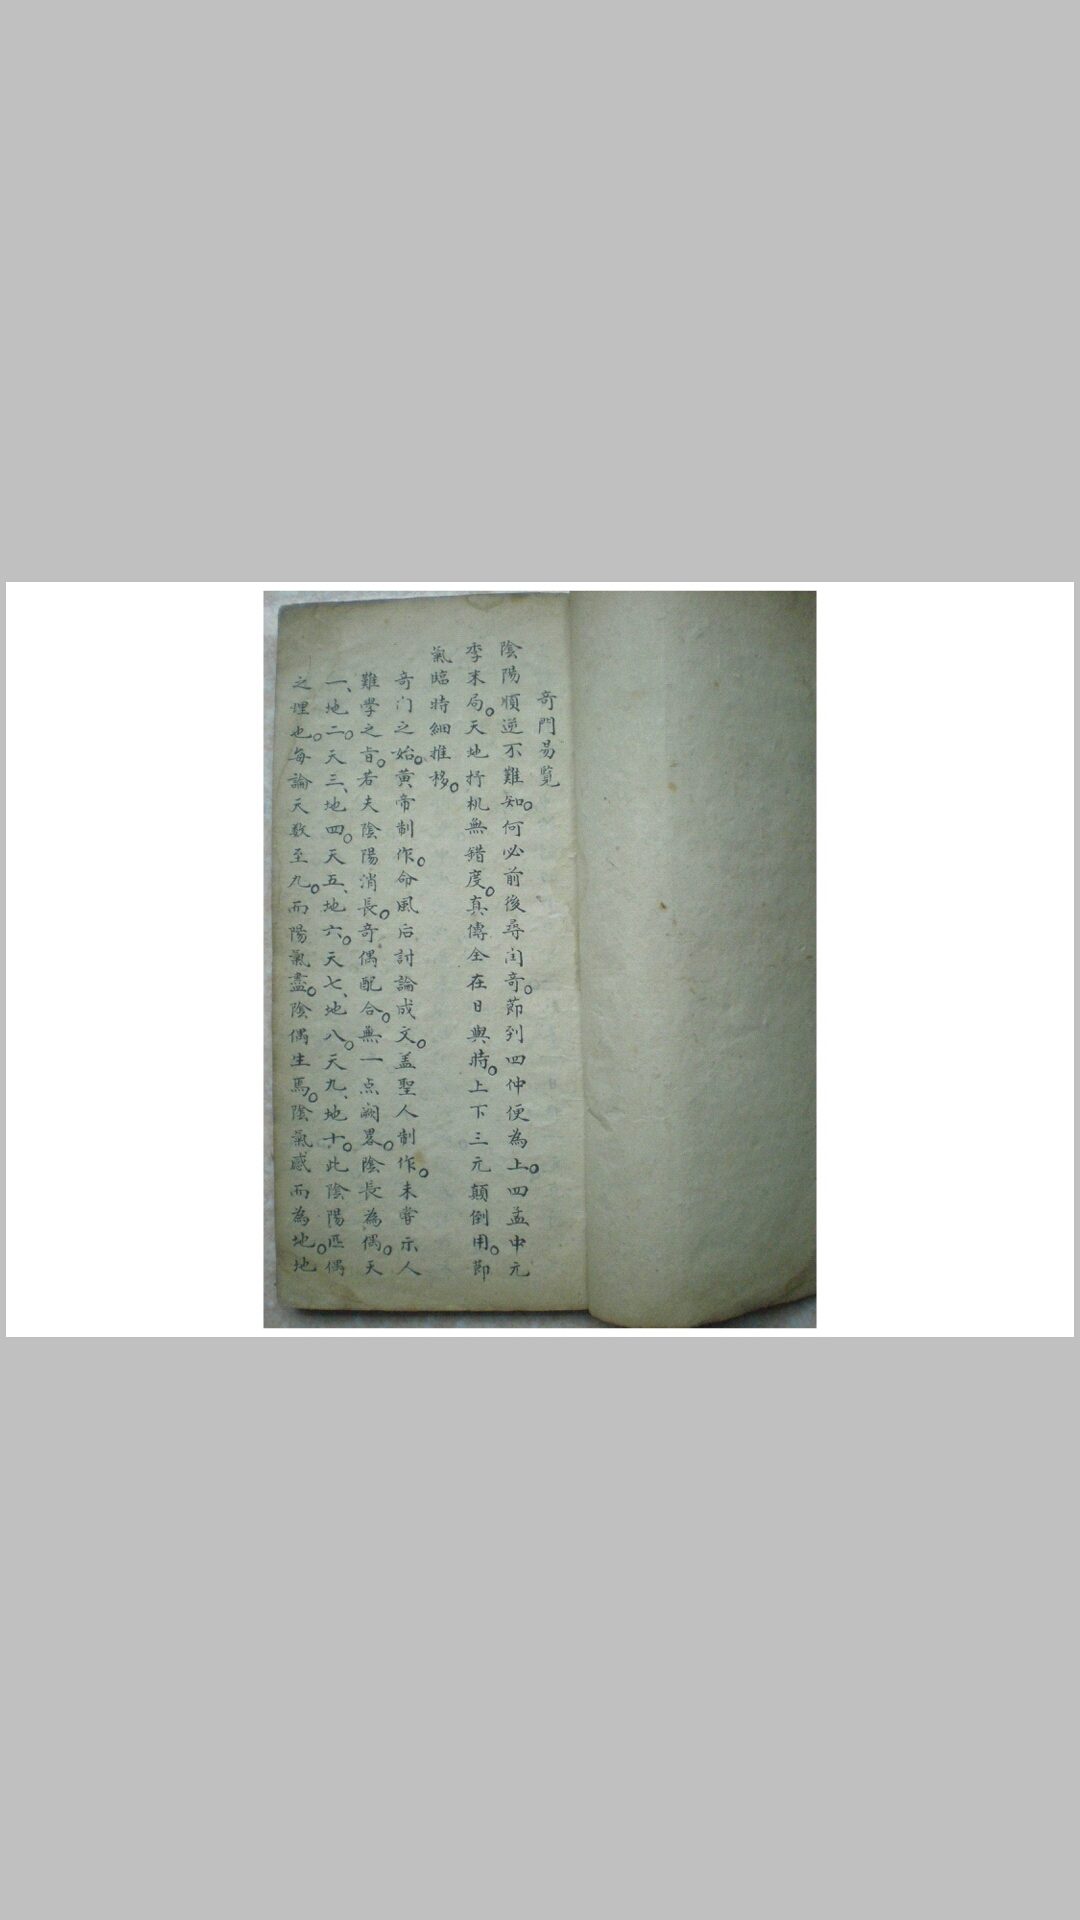 奇門易覽
陰陽順逆不難知。何必前後尋闰奇。節到四仲便為上。四孟中元
季末局。天地抒机無錯度。真傳全在日與時。上下三元顛倒用。節
氣臨時細推移。
奇门之始。黄帝制作。命風后討論成文。盖聖人制作。未嘗示人
難學之旨。若夫陰陽消長。奇偶配合。無一点阙畧。陰長為偶。天
一、地二。天三、地四。天五、地六。天七、地八。天九、地十。此陰陽匹偶
之理也。每論天数至九。而陽氣盡。陰偶生焉。陰氣感而為地。地